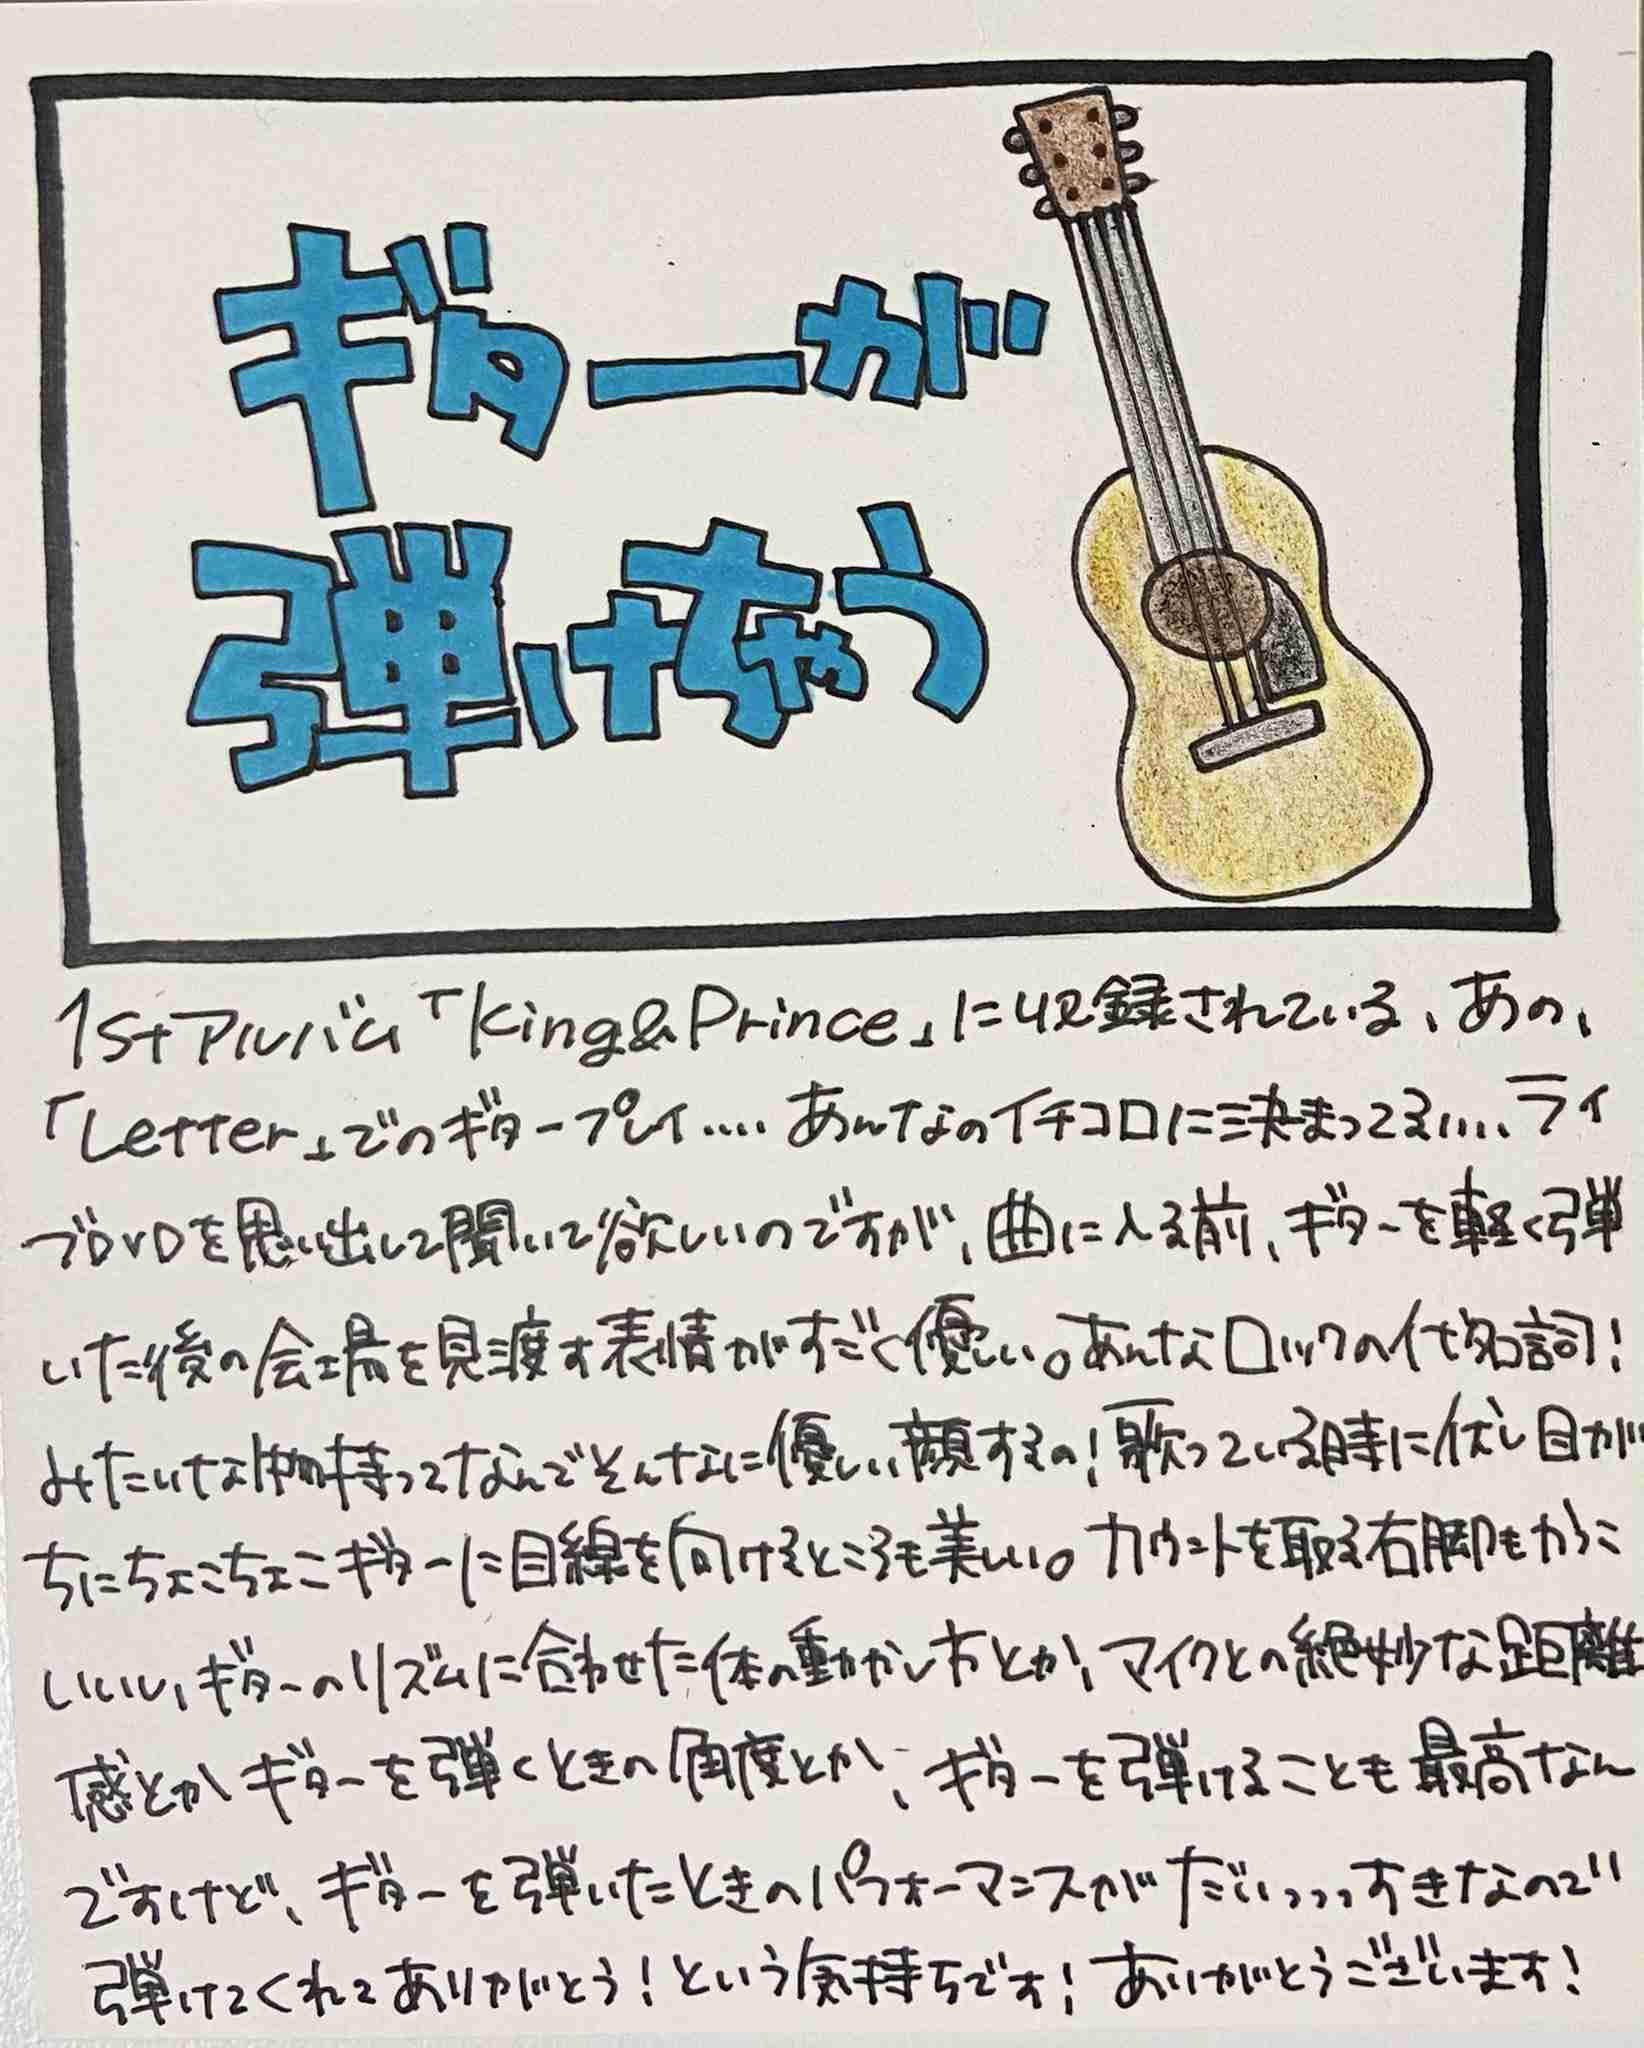 ギターが
弾けちゃう
1stアルバム「King&Prince」に収録されている、あの、
「Letter」でのギタープレイ....あんなのイチコロに決まってる....ライ
ブDVDを思い出して聞いて欲しいのですが、曲に入る前、ギターを軽く弾
いた後の会場を見渡す表情がすごく優しい。あんなロックの代名詞!
みたいな物持ってなんでそんなに優しい顔するの!歌っている時に伏し目が
ちにちょこちょこギターに目線を向けるところも美しい。カウントを取る右脚もかっこ
いいし、ギターのリズムに合わせた体の動かし方とか、マイクとの絶妙な距離
感とかギターを弾くときの角度とか、ギターを弾けることも最高なん
ですけど、ギターを弾いたときのパフォーマンスがだいっっっすきなので
弾けてくれてありがとう!という気持ちです!ありがとうございます!